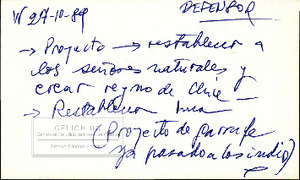 V 27-10-89 DEFENSOR
→ Proyecto → restablecer a
los señores naturales y
crear reyno de Chile —
→ Restablecer
(Proyecto de
ya pasado a los indios)
CELICH UC